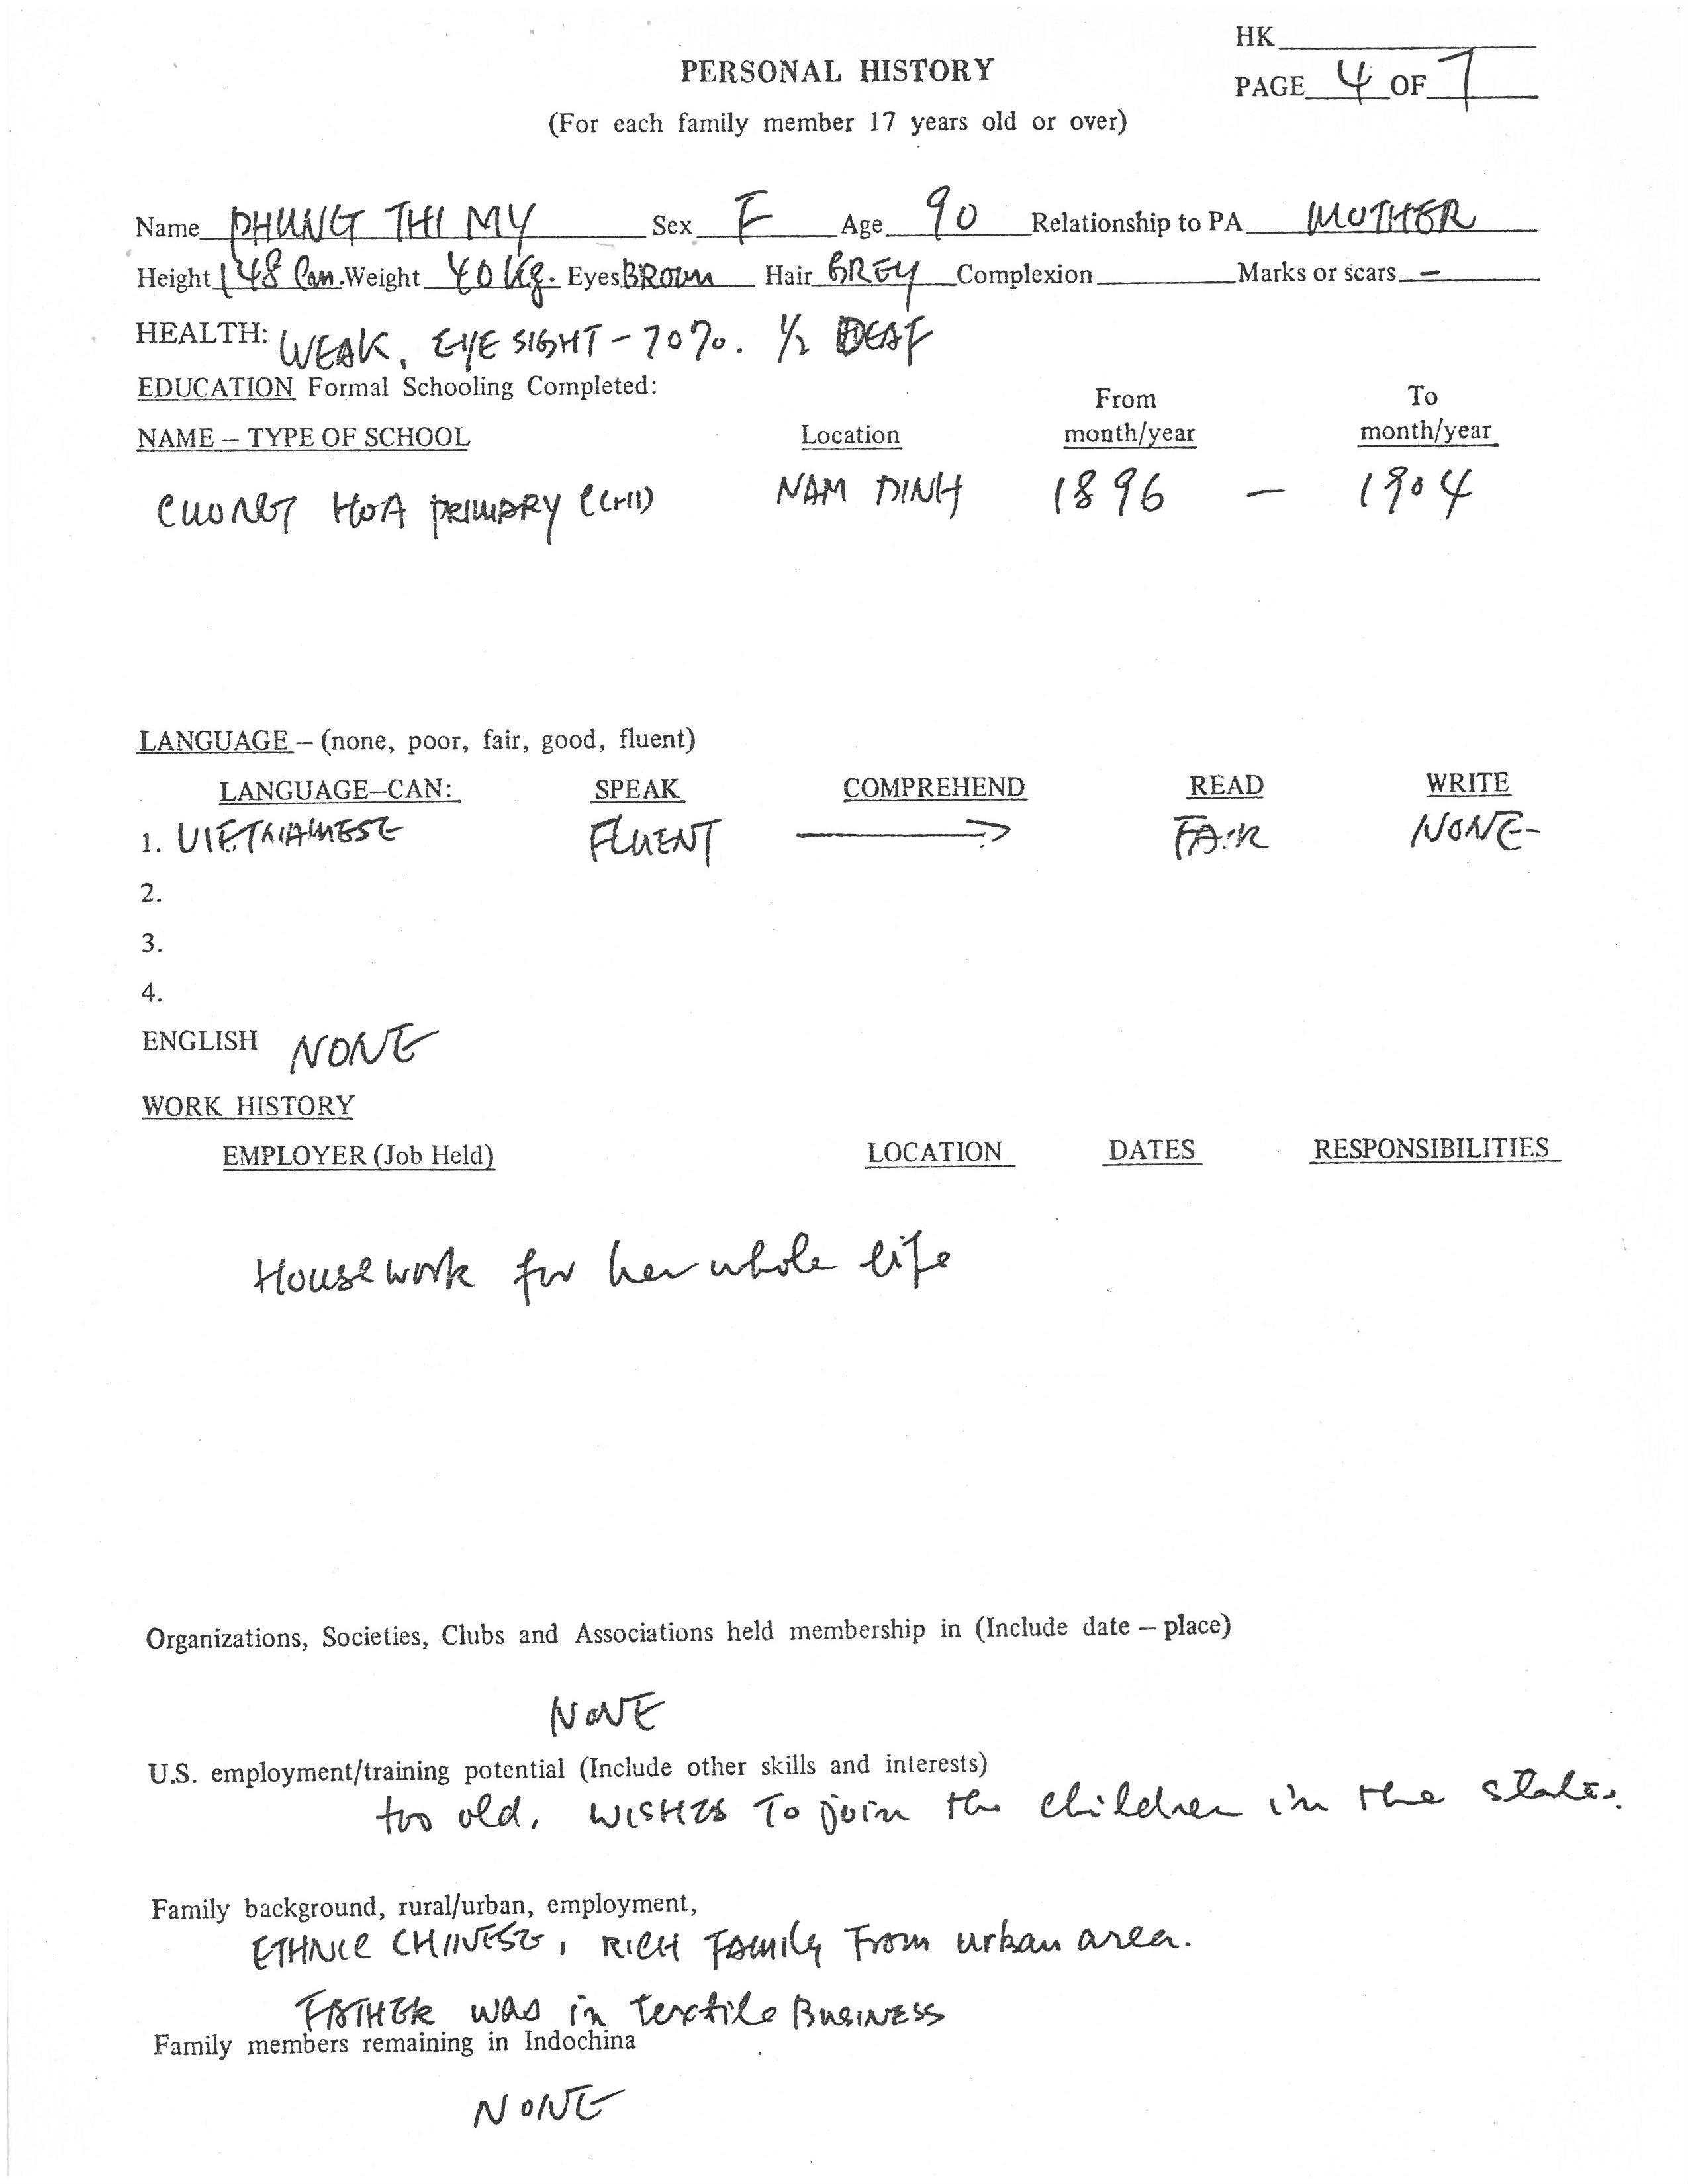 HK
PERSONAL HISTORY
PAGE 4 OF 7
(For each family member 17 years old or over)
Name PHUNG THI MY Sex F Age 90 Relationship to PA MOTHER
Height 148 Cm. Weight 40 kg. Eyes BROWN Hair GREY Complexion Marks or scars –
HEALTH: WEAK, EYE SIGHT - 70%. 1/2 DEAF
EDUCATION Formal Schooling Completed:
From To
NAME – TYPE OF SCHOOL Location month/year month/year
CHONG HOA PRIMARY (CHI) NAM DINH 1896 – 1904
LANGUAGE – (none, poor, fair, good, fluent)
LANGUAGE–CAN: SPEAK COMPREHEND READ WRITE
1. VIETNAMESE FLUENT → FAIR NONE
2.
3.
4.
ENGLISH NONE
WORK HISTORY
EMPLOYER (Job Held) LOCATION DATES RESPONSIBILITIES
Housework for her whole life
Organizations, Societies, Clubs and Associations held membership in (Include date – place)
NONE
U.S. employment/training potential (Include other skills and interests)
too old, WISHES To join the children in the states.
Family background, rural/urban, employment,
ETHNIC CHINESE, RICH FAMILY From urban area.
FATHER was in textile BUSINESS
Family members remaining in Indochina
NONE